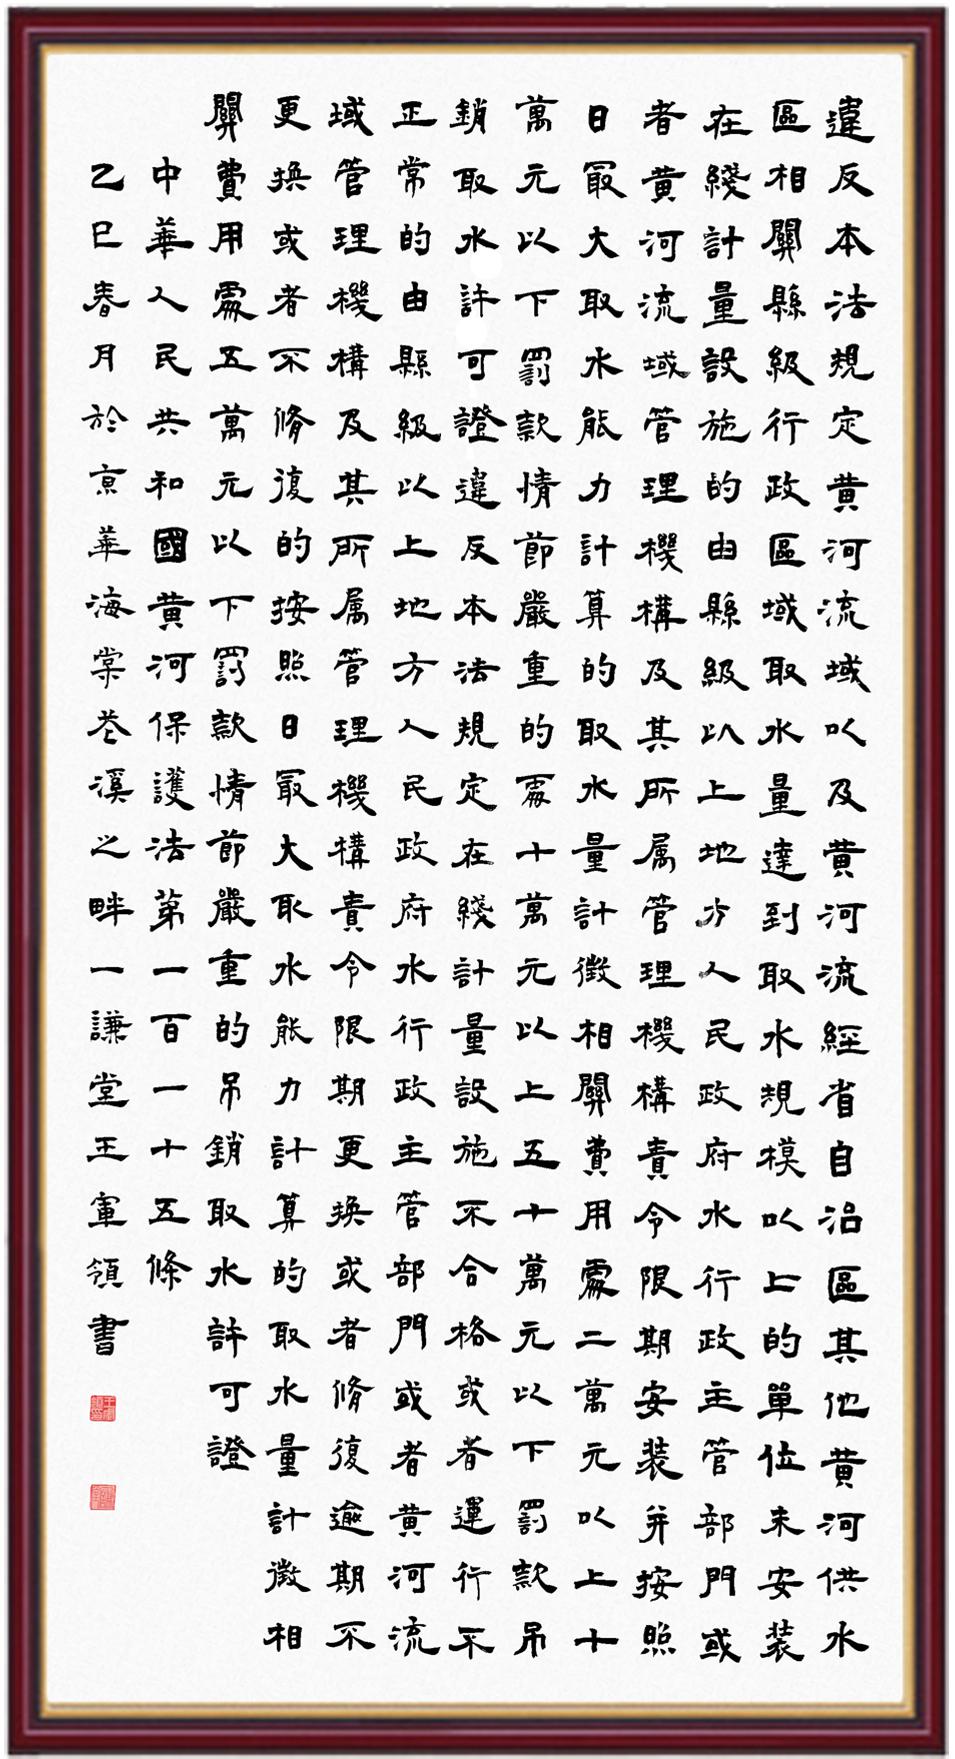 違反本法規定黄河流域以及黄河流經省自治區其他黄河供水
區相關縣級行政區域取水量達到取水規模以上的單位未安装
在綫計量設施的由縣級以上地方人民政府水行政主管部門或
者黄河流域管理機構及其所属管理機構責令限期安装并按照
日冣大取水能力計算的取水量計徵相關費用處二萬元以上十
萬元以下罰款情節嚴重的處十萬元以上五十萬元以下罰款吊
銷取水許可證違反本法規定在綫計量設施不合格或者運行不
正常的由縣級以上地方人民政府水行政主管部門或者黄河流
域管理機構及其所属管理機構責令限期更换或者脩復逾期不
更换或者不脩復的按照日冣大取水能力計算的取水量計徵相
關費用處五萬元以下罰款情節嚴重的吊銷取水許可證
中華人民共和國黄河保護法第一百一十五條
乙巳春月於京華海棠苍溪之畔一謙堂王軍領書